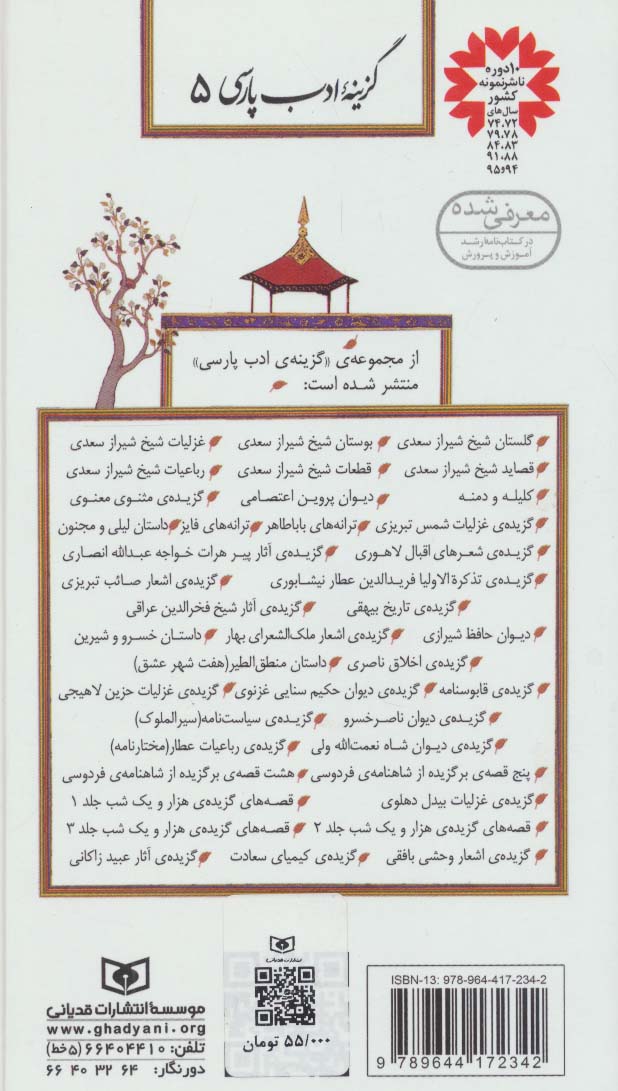 گزینهٔ ادب پارسی ۵
۱۰ دوره
ناشر نمونه
کشور
سال‌های
۷۴،۷۲
۷۹،۷۸
۸۴،۸۳
۹۱،۸۸
۹۴و۹۵
معرفی شده
در کتاب‌نامه رشد
آموزش و پرورش
از مجموعه‌ی «گزینه‌ی ادب پارسی»
منتشر شده است:
گلستان شیخ شیراز سعدی بوستان شیخ شیراز سعدی غزلیات شیخ شیراز سعدی
قصاید شیخ شیراز سعدی قطعات شیخ شیراز سعدی رباعیات شیخ شیراز سعدی
کلیله و دمنه دیوان پروین اعتصامی گزیده‌ی مثنوی معنوی
گزیده‌ی غزلیات شمس تبریزی ترانه‌های باباطاهر ترانه‌های فایز داستان لیلی و مجنون
گزیده‌ی شعرهای اقبال لاهوری گزیده‌ی آثار پیر هرات خواجه عبدالله انصاری
گزیده‌ی تذکرة الاولیا فریدالدین عطار نیشابوری گزیده‌ی اشعار صائب تبریزی
گزیده‌ی تاریخ بیهقی گزیده‌ی آثار شیخ فخرالدین عراقی
دیوان حافظ شیرازی گزیده‌ی اشعار ملک‌الشعرای بهار داستان خسرو و شیرین
گزیده‌ی اخلاق ناصری داستان منطق‌الطیر(هفت شهر عشق)
گزیده‌ی قابوسنامه گزیده‌ی دیوان حکیم سنایی غزنوی گزیده‌ی غزلیات حزین لاهیجی
گزیده‌ی دیوان ناصرخسرو گزیده‌ی سیاست‌نامه(سیرالملوک)
گزیده‌ی دیوان شاه نعمت‌الله ولی گزیده‌ی رباعیات عطار(مختارنامه)
پنج قصه‌ی برگزیده از شاهنامه‌ی فردوسی هشت قصه‌ی برگزیده از شاهنامه‌ی فردوسی
گزیده‌ی غزلیات بیدل دهلوی قصه‌های گزیده‌ی هزار و یک شب جلد ۱
قصه‌های گزیده‌ی هزار و یک شب جلد ۲ قصه‌های گزیده‌ی هزار و یک شب جلد ۳
گزیده‌ی اشعار وحشی بافقی گزیده‌ی کیمیای سعادت گزیده‌ی آثار عبید زاکانی
موسسهٔ انتشارات قدیانی
www.ghadyani.org
تلفن: ۶۶۴۰۴۴۱۰ (۵خط)
دورنگار: ۶۶۴۰۳۲۶۴
انتشارات قدیانی
۵۵/۰۰۰ تومان
ISBN-13: 978-964-417-234-2
9 789644 172342